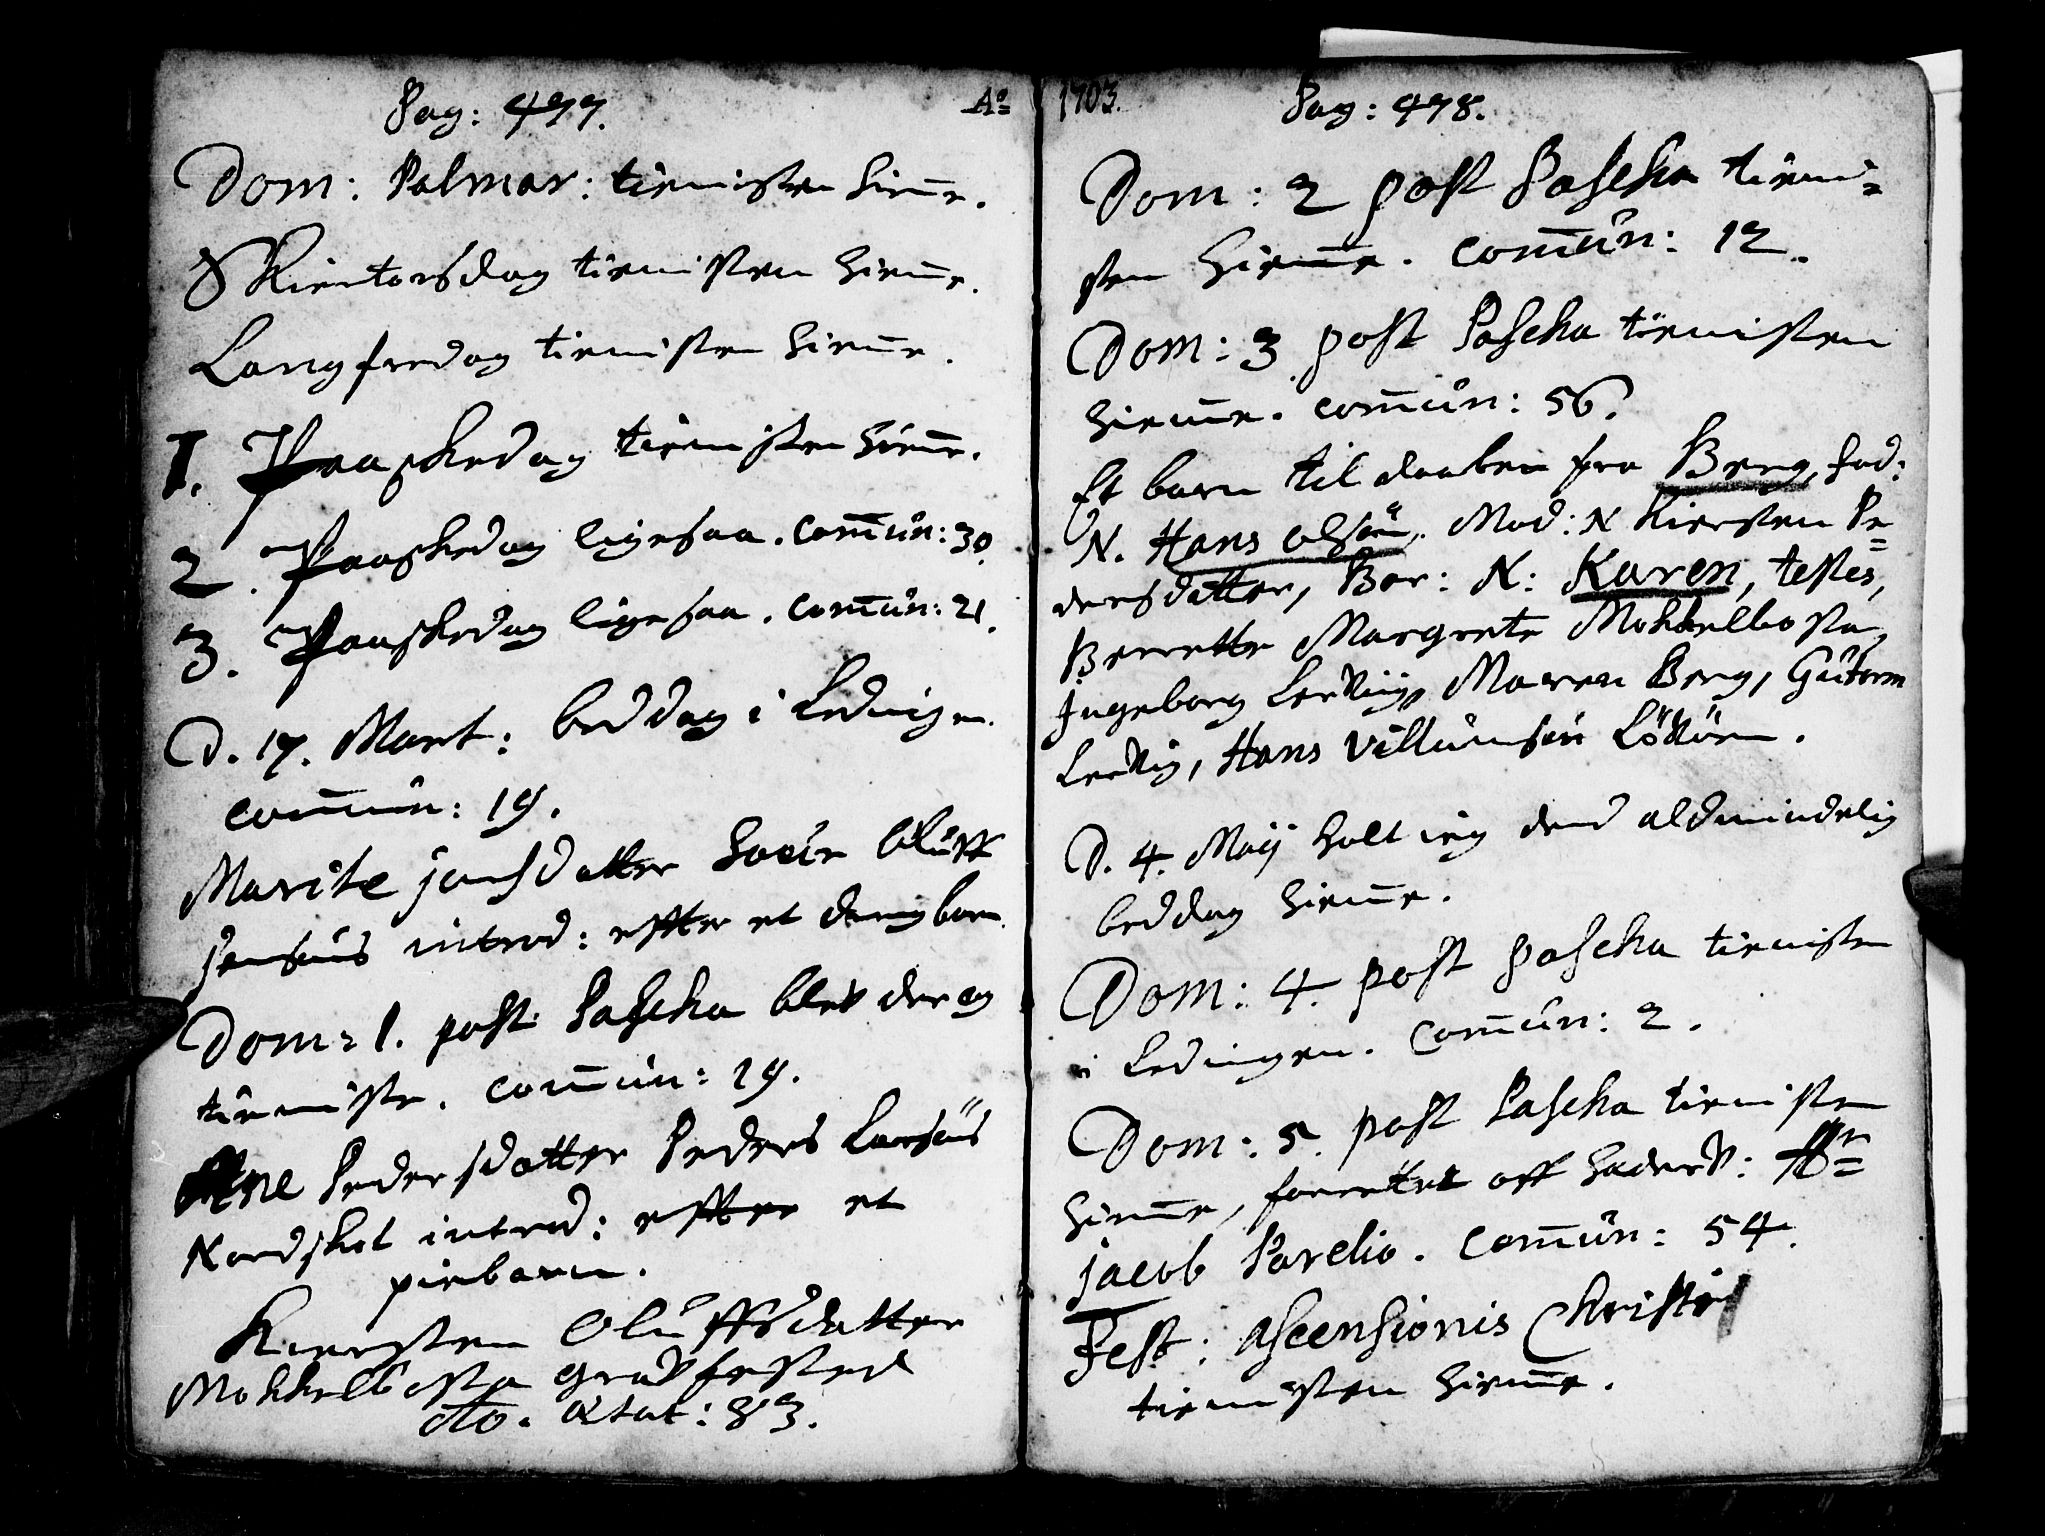 Pag: 477.
Dom: Palmar: tienisten hiem̄e.
Skiertorsdag tienisten hiem̄e.
Langfredag tienisten hiem̄e.
1. Paaskedag tienisten hiem̄e.
2. Paaskedag ligesaa. com̄un: 30.
3. Paaskedag ligesaa. com̄un: 21.
D. 17. Mart: beddag i Lødingen.
com̄un: 19.
Marite jonsdatter Oluff
Jensøns introd: effter et drengbarn.
Dom: 1. post Pascha blev der og
tienniste. com̄un: 19.
Ane Pedersdatter Peders Larsøns
Nordskot introd: effter et
piebarn.
Kiersten Oluffsdatter
Mokkelbosta graffested
Ao. ætat: 83.
Ao 1703.
Pag: 478.
Dom: 2 post Pascha tieni=
sten hiem̄e. com̄un: 12.
Dom: 3 post Pascha tienisten
hiem̄e. com̄un: 56.
Et barn til daaben fra Berg, fad:
N. Hans Olsøn, Mod: N Kiersten Pe=
dersdatter, Bar: N: Karen, testes,
Berrette Margrete Mokkelbosta,
Ingeborg Leervig, Maren Berg, Guttorm
Leervig, Hans Villumsøn
D. 4. Maij holt ieg dend aldmindelig
beddag hiem̄e.
Dom: 4. post pascha tienisten
i Lødingen. Com̄un: 2.
Dom: 5. post Pascha tienisten
hiem̄e, forrettet aff hederl: Hr=
Jacob Parelio. Com̄un: 54.
Fest: ascensionis Christi
tienisten hiem̄e.